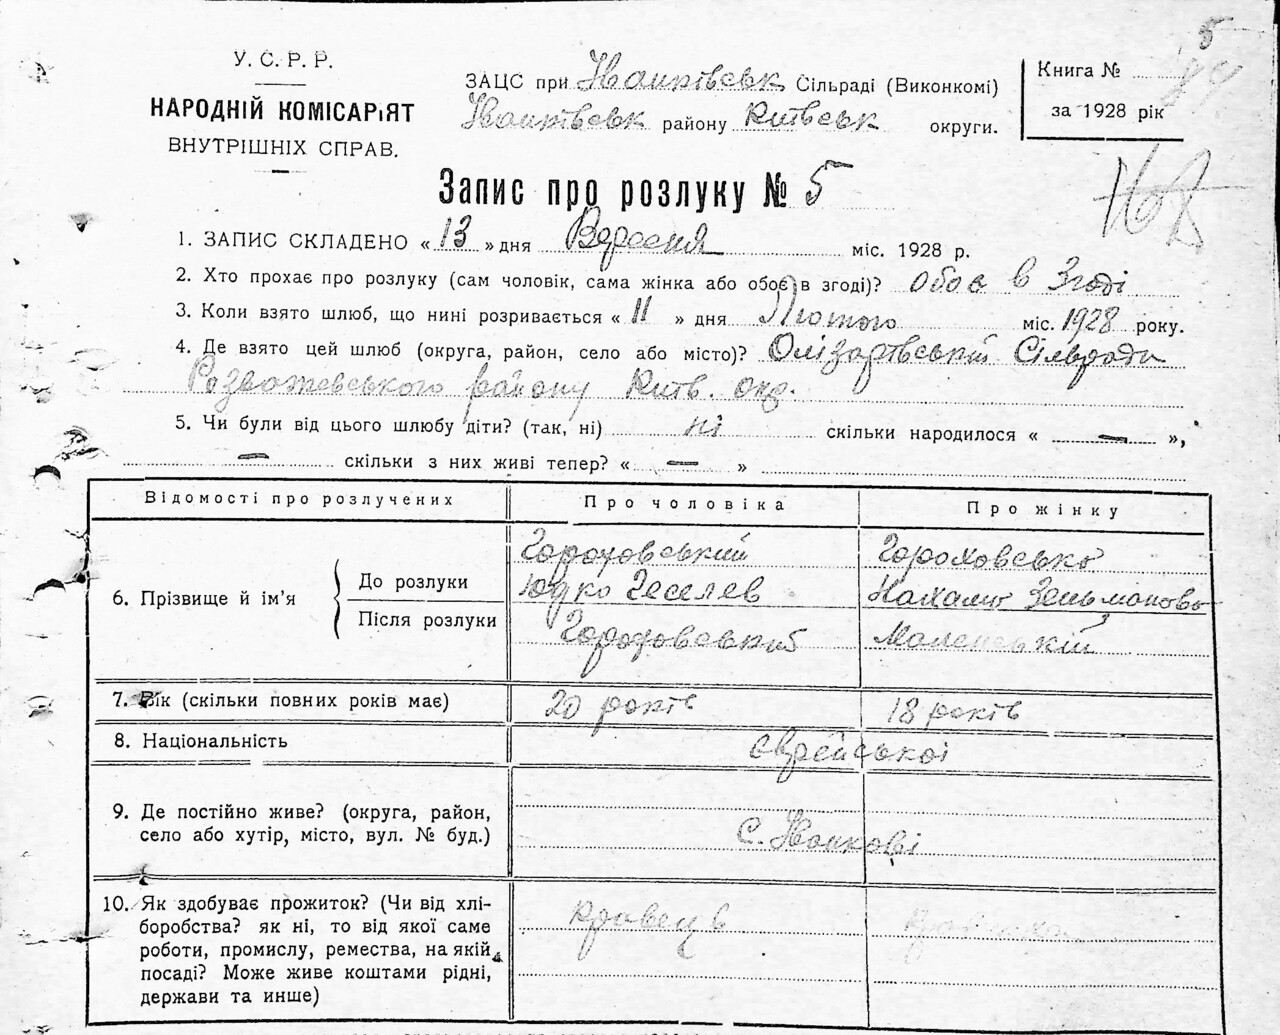 5
У. С. Р. Р.
НАРОДНІЙ КОМІСАРІЯТ
ВНУТРІШНІХ СПРАВ.
ЗАЦС при Іванківськ Сільраді (Виконкомі)
Іванківськ району Київськ округи.
Книга №
за 1928 рік
Запис про розлуку № 5
1. ЗАПИС СКЛАДЕНО « 13 » дня Вересня міс. 1928 р.
2. Хто прохає про розлуку (сам чоловік, сама жінка або обоє в згоді)? обоє в Згоді
3. Коли взято шлюб, що нині розривається « 11 » дня Лютого міс. 1928 року.
4. Де взято цей шлюб (округа, район, село або місто)? Олізарівській Сільради
Розважевського району Київ. окр.
5. Чи були від цього шлюбу діти? (так, ні) ні скільки народилося « — »,
— скільки з них живі тепер? « — »
Відомості про розлучених Про чоловіка Про жінку
6. Прізвище й ім’я
До розлуки
Після розлуки
Гороховський
Юдко Геселев
Гороховський
Гороховсько
Зельманово
7. Вік (скільки повних років має) 20 років 18 років
8. Національність Єврейської
9. Де постійно живе? (округа, район,
село або хутір, місто, вул. № буд.) с. Іванкові
10. Як здобуває прожиток? (Чи від хлі-
боробства? як ні, то від якої саме
роботи, промислу, ремества, на якій
посаді? Може живе коштами рідні,
держави та инше)
кравець